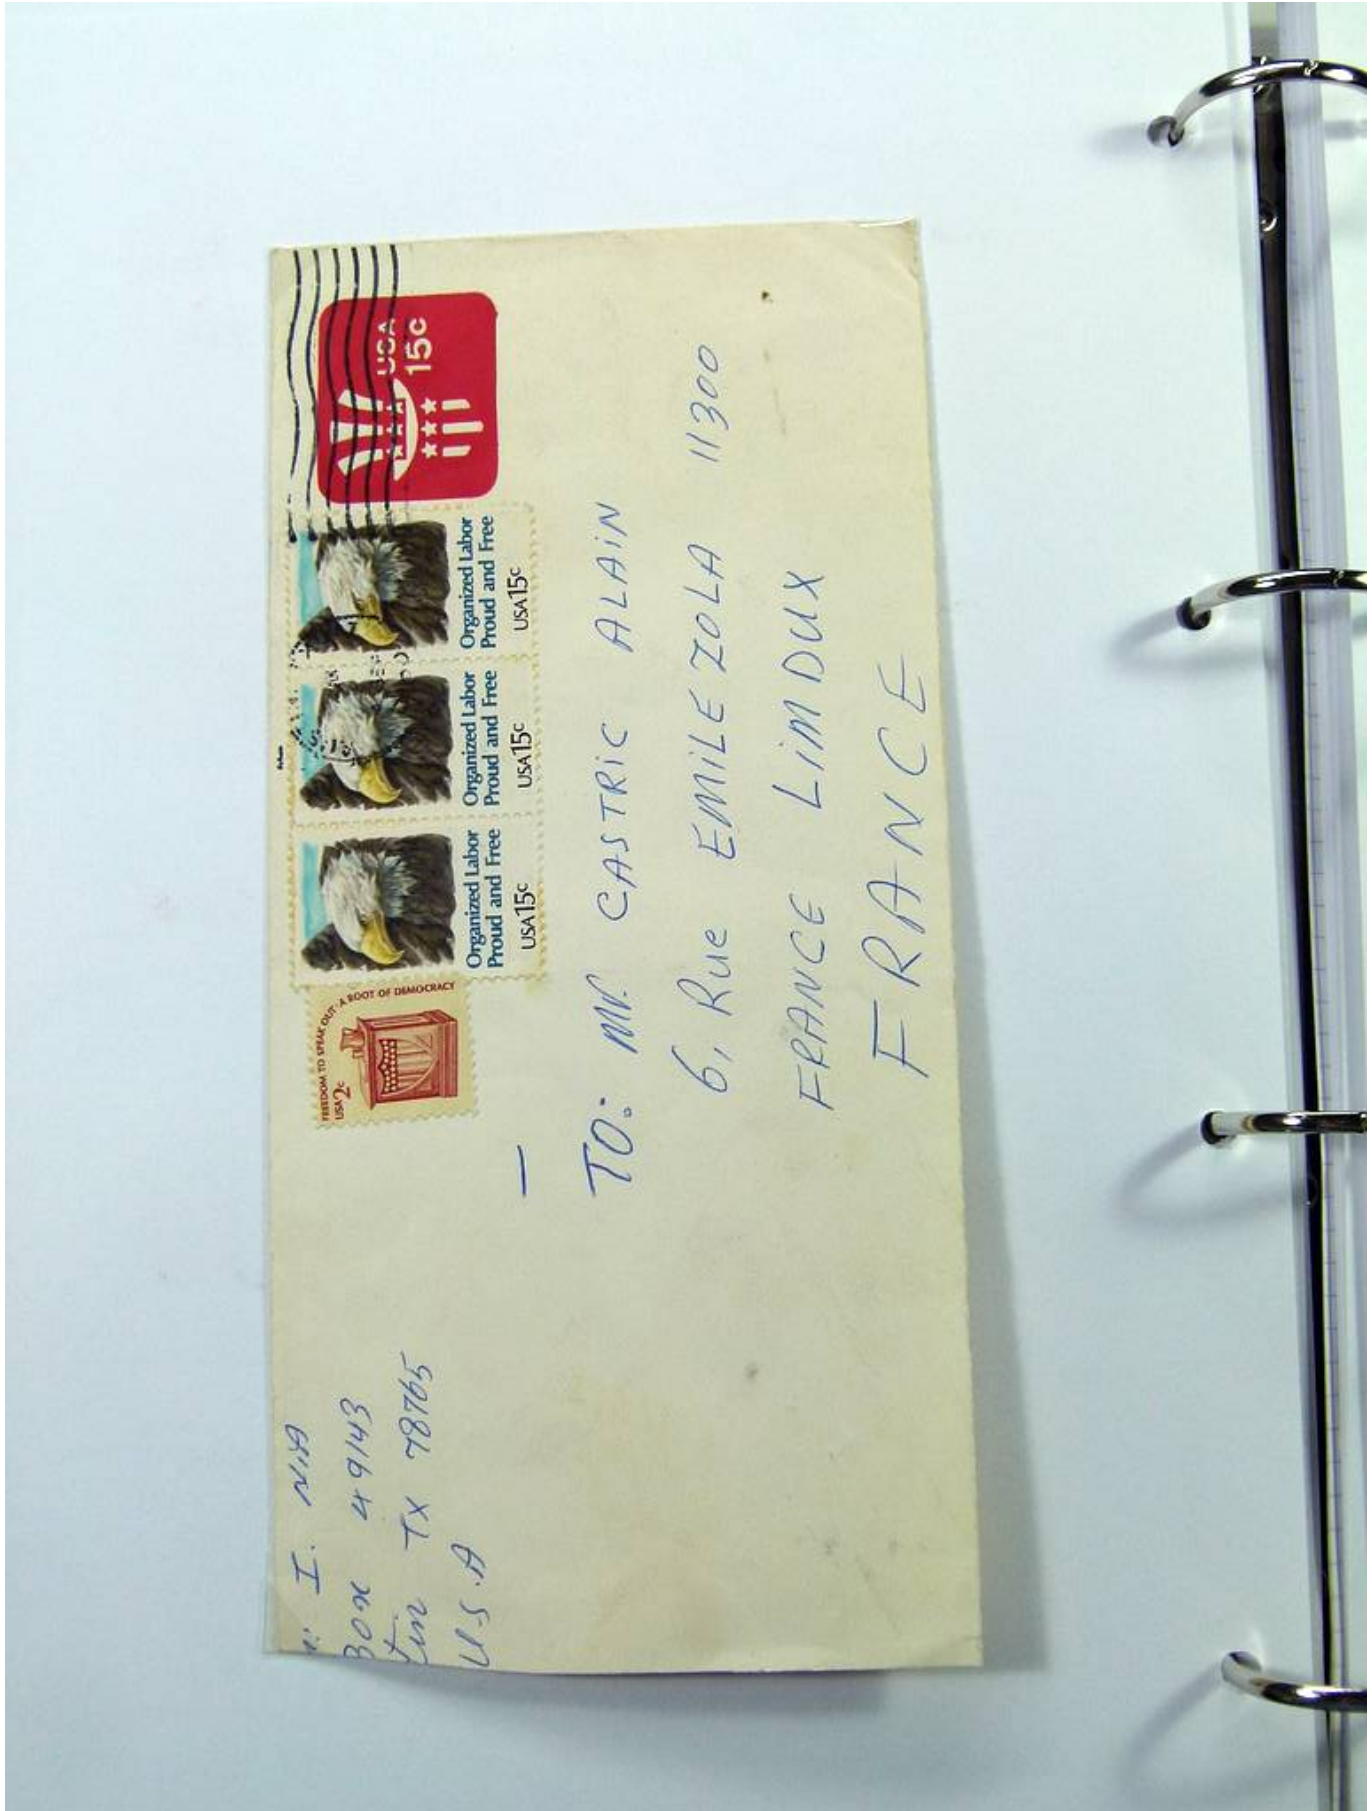 I. NIA
BOX 49143
TX 78765
U.S.A
FREEDOM TO SPEAK OUT · A ROOT OF DEMOCRACY
USA 2c
Organized Labor
Proud and Free
USA 15c
Organized Labor
Proud and Free
USA 15c
Organized Labor
Proud and Free
USA 15c
USA
15c
TO: Mr. CASTRIC ALAIN
6, Rue EMILE ZOLA 11300
FRANCE LIMDUX
FRANCE